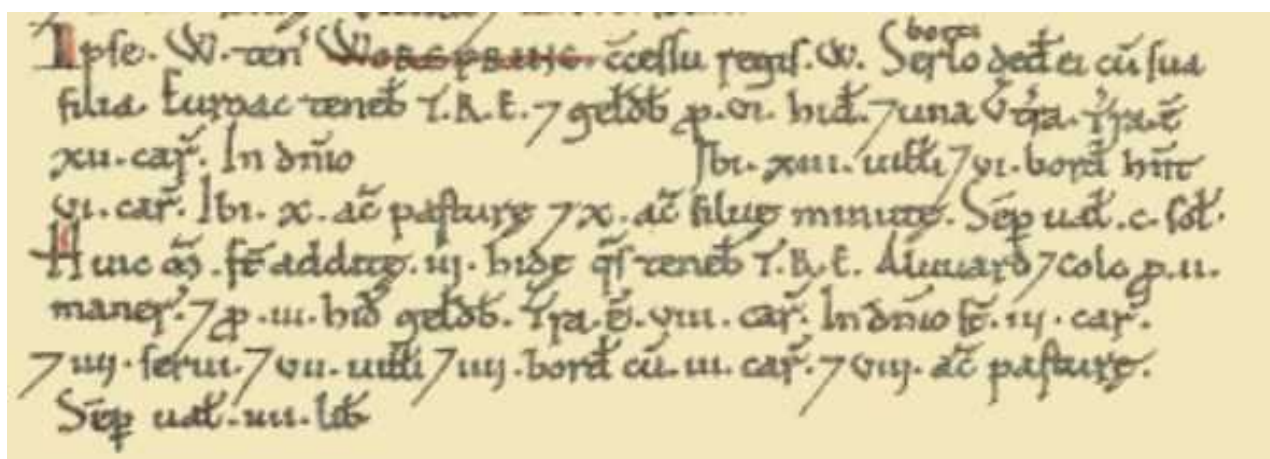 Ipse. W. ten̄ WORSPRING c̄cessu regis. W. Serlo de borci ded̄ ei cū sua
filia. Euroac teneb̄ T.R.E. ⁊ geldb̄ p̱. vi. hid̄. ⁊ una v̄ t̄ra. T̄ra. ē
xii. car̄. In dn̄io Ibi. xiii. uilli ⁊ vi. bord̄ hn̄t
vi. car̄. Ibi. x. ac̄ pasturę ⁊ x. ac̄ siluę minutę. Sēp ual̄. c. sol̄.
Huic m̄. st̄ additę. iij. hidę q̄s teneb̄ T.R.E. Aluuard ⁊ colo p̱. ii.
maner̄. ⁊ p̱. iii. hid̄ geldb̄. T̄ra. ē. viii. car̄. In dn̄io st̄. iij. car̄.
⁊ iiij. serui. ⁊ vii. uilli ⁊ iiij. bord̄ cū. iii. car̄. ⁊ viij. ac̄ pasturę.
Sēp ual̄. iii. lib̄